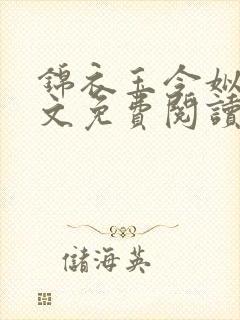 錦衣玉令姒
文免費閱讀
儲海英